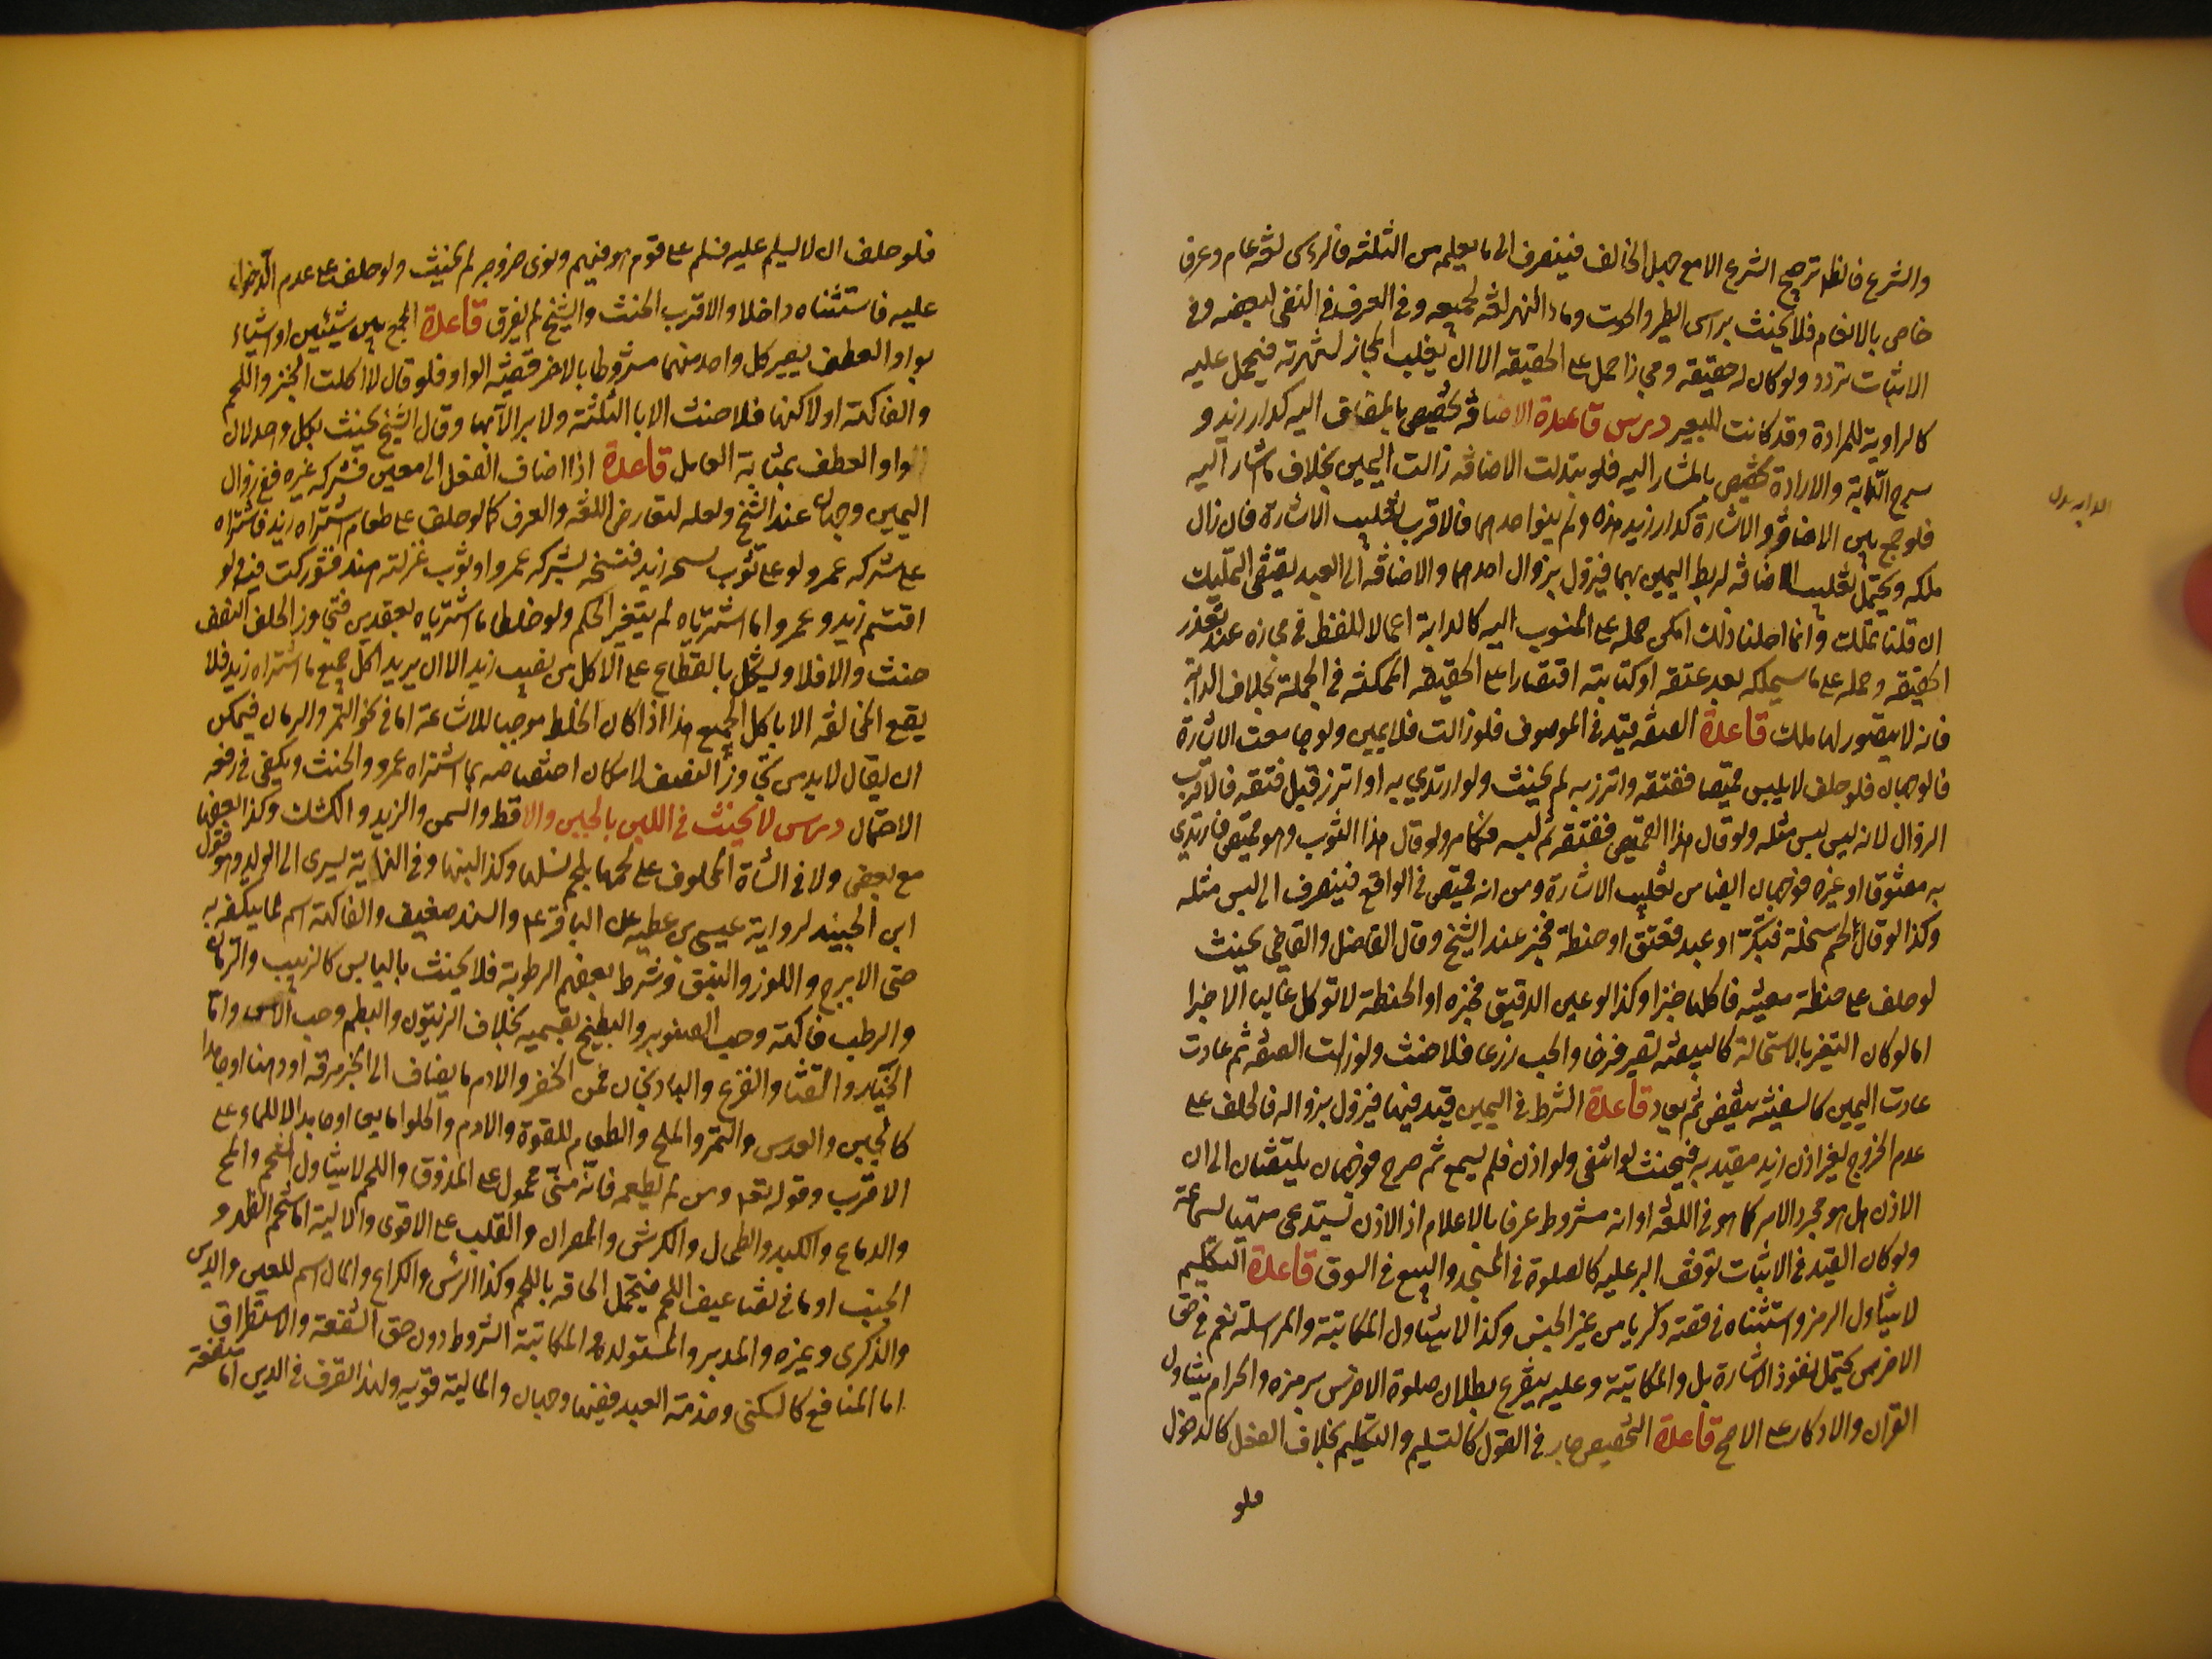 والشرع فالظ ترجيح الشرع الا مع جهل الحالف فينصرف الى ما يعلمه من الثلثه فالرءس لغه عام وعرفا
خاص بالانعام فلا يحنث براس الطير والحوت وماء النهر لغه لجميعه وفي العرف في النفي لبعضه وفي
الاثبات تردد ولو كان له حقيقه ومجاز حمل على الحقيقه الا ان يغلب المجاز لشهرته فيحمل عليه
كالراوية للمزادة وقد كانت للبعير درس قاعدة الاضافه تخصيص بالمضاف اليه كدار زيد و
سرج الدابة والارادة تخصيص بالمشار اليه فلو تبدلت الاضافه زالت اليمين بخلاف ما شار اليه
فلو جمع بين الاضافة والاشارة كدار زيد هذه ولم ينو احدهما فالاقرب تغليب الاشارة فان زال
ملكه ويحتمل تغليب الاضافه لربط اليمين بهما فيزول بزوال احدهما والاضافه الى العبد يقتضي التمليك
ان قلنا بملك وانما احلنا ذلك امكن حمله على المنسوب اليه كالدابة اعمالا للفظ في مجازه عند تعذر
الحقيقه وحمله على ما سيملكه بعد عتقه او كتابته اقتصارا على الحقيقه الممكنه في الجملة بخلاف الدابة
فانه لا يتصور لها ملك قاعدة الصفه قيد في الموصوف فلو زالت فلا يمين ولو جامعت الاشارة
فالوجهان فلو حلف لا يلبس قميصا ففتقه واتزر به لم يحنث ولو ارتدي به او اتزر قبل فتقه فالاقرب
الزوال لانه ليس لبس مثله ولو قال هذا القميص ففتقه ثم لبسه فكما مر ولو قال هذا الثوب وهو قميص فارتدي
به مفتوقا او غيره فوجهان ايضا من تغليب الاشارة ومن انه قميص في الواقع فينصرف الى لبس مثله
وكذا لو قال لحم سخلة فتكبر او عبد فعتق او حنطة فخبز عند الشيخ وقال الفاضل والقاضي يحنث
لو حلف على حنطة معينه فاكلها خبزا وكذا لو عين الدقيق فخبزه او الحنطة لا تؤكل غالبا الا خبزا
اما لو كان التغير بالاستحالة كالبيضه تصير فرخا والحب زرعا فلا حنث ولو زالت الصفه ثم عادت
عادت اليمين كالسفينه تنقض ثم يعاد قاعدة الشرط في اليمين قيد فيها فيزول بزواله فالحلف على
عدم الخروج بغير اذن زيد مقيد به فيحنث لو انتفى ولو اذن فلم يسمع ثم خرج فوجهان يلتفتان الى ان
الاذن هل هو مجرد الامر كما هو في اللغه او انه مشروط عرفا بالاعلام اذ الاذن يستدعي منهيا لسماعه
ولو كان القيد في الاثبات توقف البر عليه كالصلوة في المسجد والبيع في السوق قاعدة التكليم
لا يتناول الرمز واستثناه في قصه ذكريا من غير الجنس وكذا لا يتناول المكاتبة والمراسلة نعم في حق
الاخرس يحتمل نفوذ الاشارة بل والمكاتبة وعليه يتفرع بطلان صلوة الاخرس برمزه والحرام يتناول
القران والاذكار على الاصح قاعدة التخصيص جاير في القول كالتسليم والتكليم بخلاف الفعل كالدخول
فلو
فلو حلف ان لا يسلم عليه فسلم على قوم هو فيهم ونوى خروجه لم يحنث ولو حلف على عدم الدخول
عليه فاستثناه داخلا والاقرب الحنث والشيخ لم يفرق قاعدة الجمع بين شيئين او اشياء
بواو العطف يصير كل واحد منهما مشروطا بالاخر قضيه الواو فلو قال لا اكلت الخبز واللحم
والفاكهة او لاكلنها فلا حنث الا با الثلثة ولا بر الا بها وقال الشيخ يحنث بكل واحد لان
الواو العطف بمثابة العامل قاعدة اذا اضاف الفعل الى معين فشركه غيره ففي زوال
اليمين وجهان عند الشيخ ولعله لتعارض اللغه والعرف كما لو حلف على طعام اشتراه زيد فاشتراه
على شركه عمرو لو على ثوب نسجه زيد فنسجه بشركه عمرو او ثوب غزلته هند فشوركت فيه ولو
اقتسم زيد و عمرو اما اشترياه لم يتغير الحكم ولو خلطا ما اشترياه بعقدين فتجاوز الحلف النصف
حنث والا فلا ويشكل بالقطاع على الاكل من نصيب زيد الا ان يريد اكل جميع ما اشتراه زيد فلا
يقع المخالفه الا باكل الجميع هذا اذا كان الخلط موجبا للاشاعه اما في نحو التمر والرمان فيمكن
ان يقال لا بد من تجاوز النصف لامكان اختصاصه بما اشتراه عمرو والحنث ويكفي في رفعه
الاحتمال درس لا يحنث في اللبن بالجبن والاقط والسمن والزبد والكشك وكذا بعضها
مع بعض ولا في الشاة المحلوف على لحمها بلحم نسلها وكذا لبنها وفي النهاية يسرى الى الولد وهو قول
ابن الجنيد لرواية عيسى بن عطيه عن الباقر ع والسند ضعيف والفاكهة اسم لما يتفكه به
حتى الاترج واللوز والنبق وشرط بعضهم الرطوبة فلا يحنث باليابس كالزبيب والرمان
والرطب فاكهة وحب الصنوبر والبطيخ بقسميه بخلاف الزيتون والبطم وحب الاس واما
الخيار والقثا والقرع والبادنجان فمن الخضر والادم ما يضاف الى الخبز مرقه او دهنا او جامدا
كالجبن والعدس والتمر والملح والطعام للقوة والادم والحلوا مايعا او جامدا لا للماء على
الاقرب وقوله تعه ومن لم يطعمه فانه منى محمول على المذوق واللحم لا يتناول الشحم والمخ
والدماغ والكبد والطحال والكرش والمصران والقلب على الاقوى والالية اما شحم الظهر و
الجنب او ما في تضاعيف اللحم فيحتمل الحاقه باللحم وكذا الرئس والكراع والمال اسم للعين والدين
والذكرى وغيره والمدبر والمستولده المكاتبة الشروط دون حق الشفعة والاستطراق
اما المنافع كالسكنى وخدمة العبد ففيها وجهان والمالية قويه ولهذا القرف في الدين اما